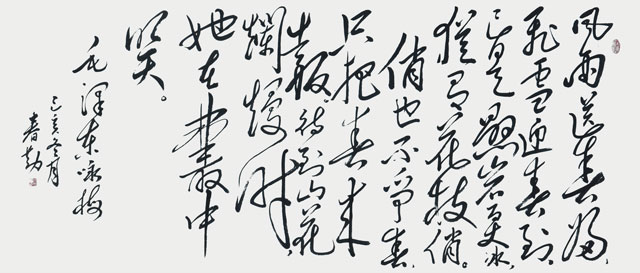 风雨送春归，
飞雪迎春到，
已是悬岩百丈冰，
犹有花枝俏。
俏也不争春，
只把春来
春报，待到山花
爛熳时，
她在叢中
笑。
毛泽东咏梅
己亥冬月
春勤